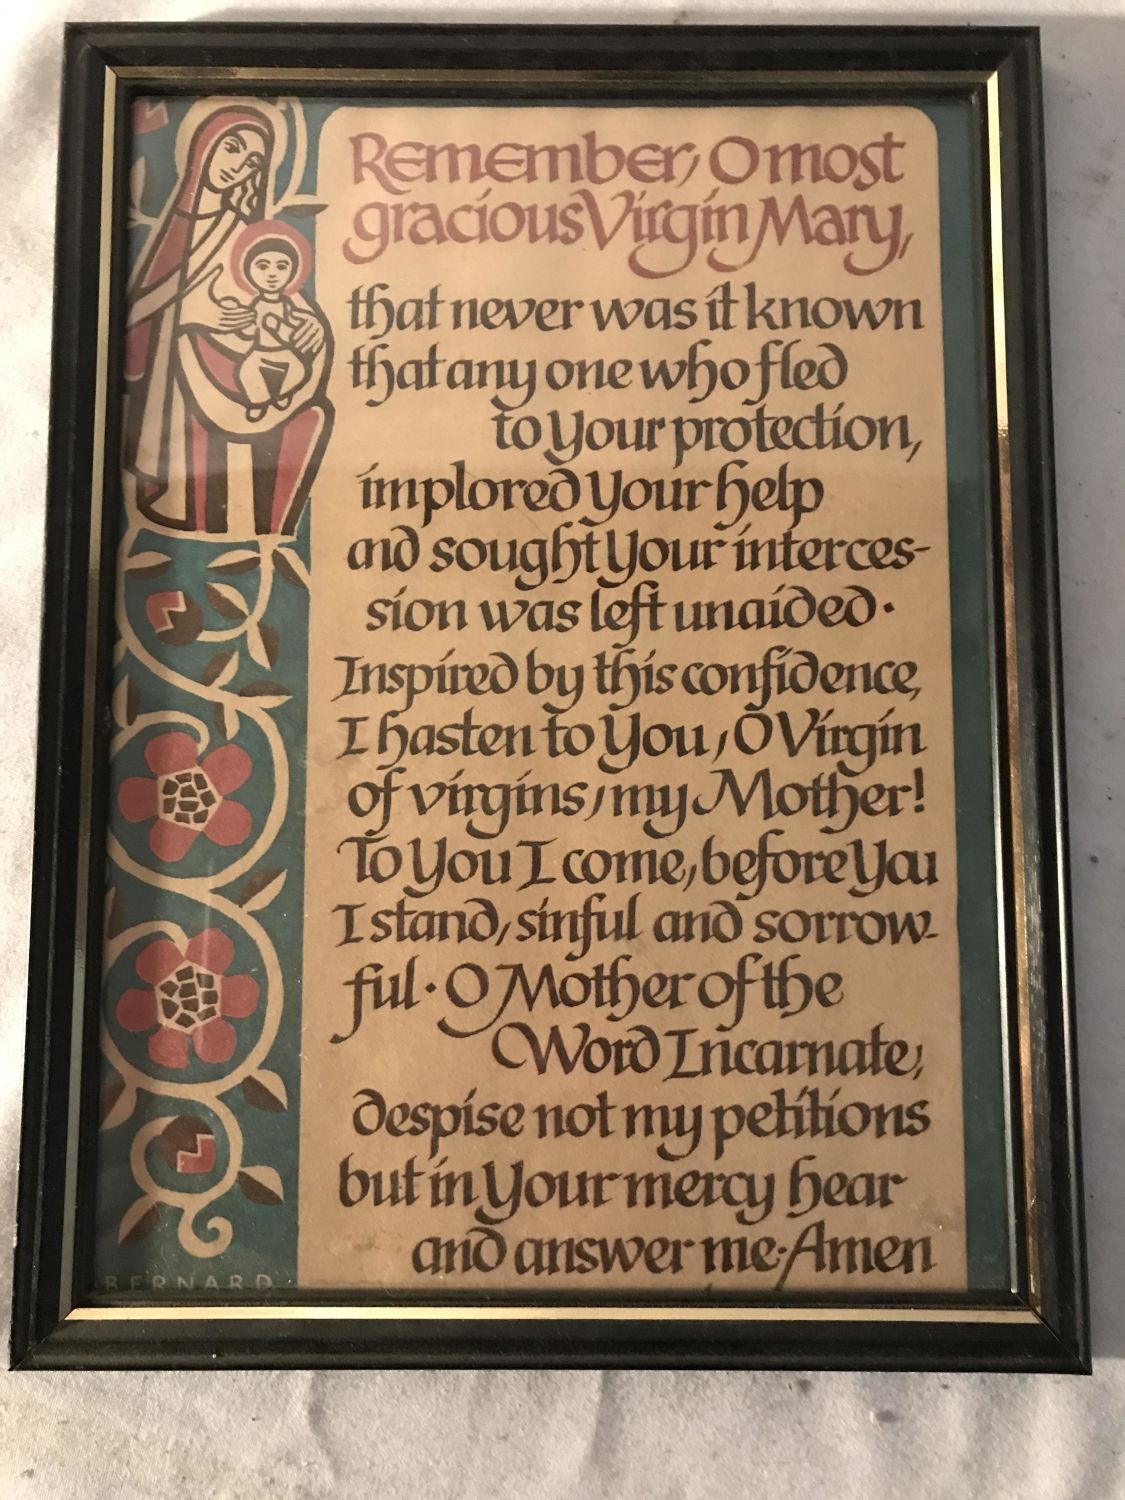 Remember, O most
gracious Virgin Mary,
that never was it known
that any one who fled
to Your protection,
implored Your help
and sought Your interces-
sion was left unaided·
Inspired by this confidence,
I hasten to You, O Virgin
of virgins, my Mother!
To You I come, before You
I stand, sinful and sorrow-
ful· O Mother of the
Word Incarnate,
despise not my petitions
but in Your mercy hear
and answer me· Amen
BERNARD